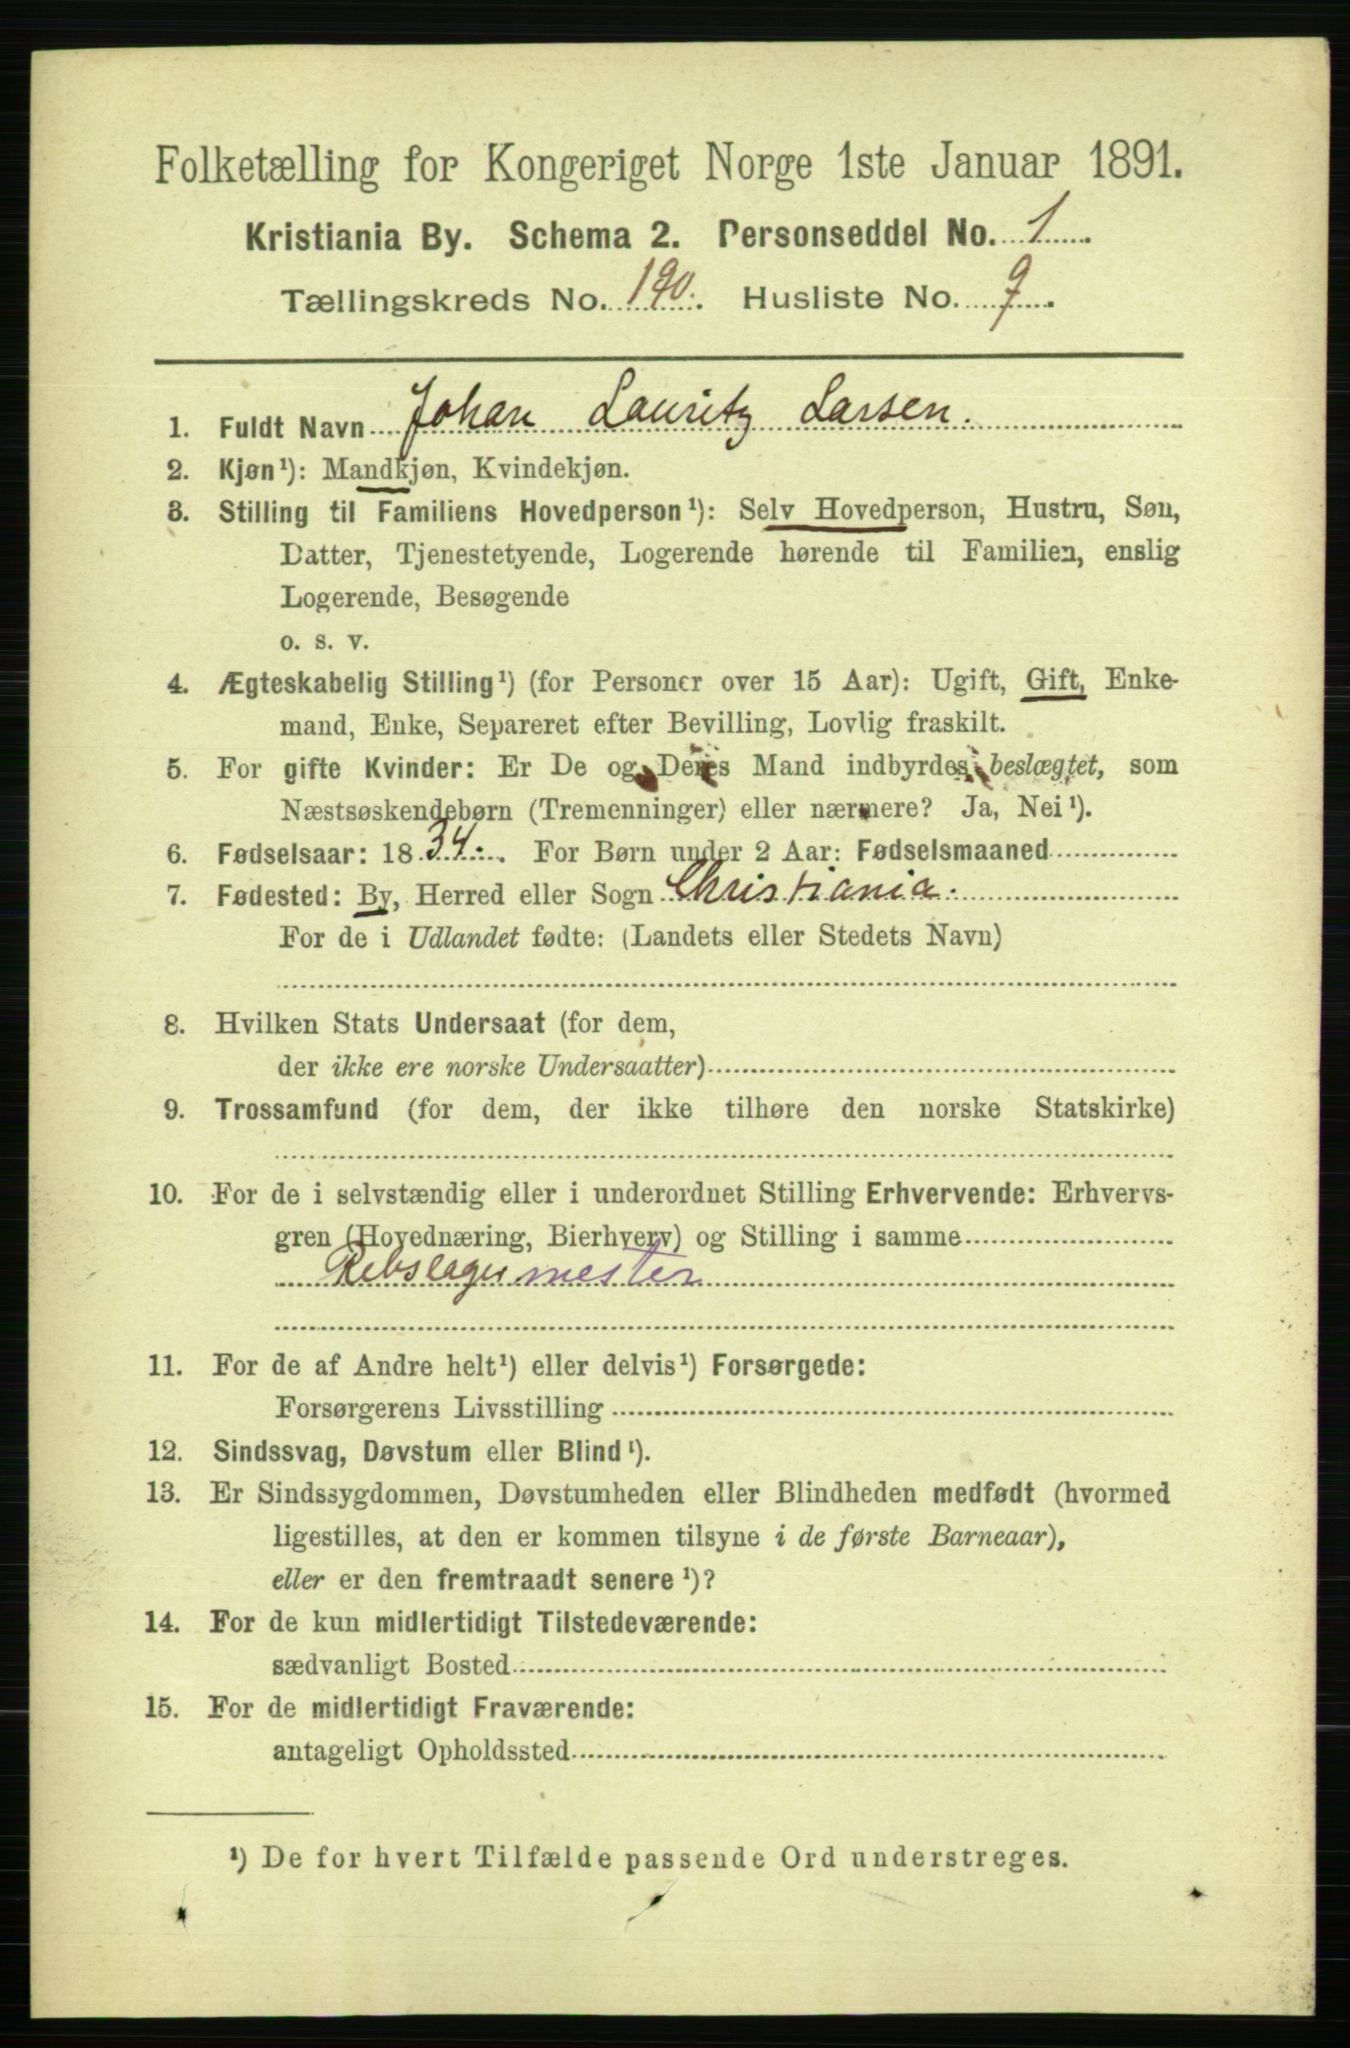 Folketælling for Kongeriget Norge 1ste Januar 1891.
Kristiania By. Schema 2. Personseddel No. 1
Tællingskreds No. 190. Husliste No. 9
1. Fuldt Navn Johan Lauritz Larsen.
2. Kjøn¹): Mandkjøn, Kvindekjøn.
3. Stilling til Familiens Hovedperson¹): Selv Hovedperson, Hustru, Søn,
Datter, Tjenestetyende, Logerende hørende til Familien, enslig
Logerende, Besøgende
o. s. v.
4. Ægteskabelig Stilling¹) (for Personer over 15 Aar): Ugift, Gift, Enke-
mand, Enke, Separeret efter Bevilling, Lovlig fraskilt.
5. For gifte Kvinder: Er De og Deres Mand indbyrdes beslægtet, som
Næstsøskendebørn (Tremenninger) eller nærmere? Ja, Nei¹).
6. Fødselsaar: 1834. For Børn under 2 Aar: Fødselsmaaned
7. Fødested: By, Herred eller Sogn Christiania.
For de i Udlandet fødte: (Landets eller Stedets Navn)
8. Hvilken Stats Undersaat (for dem,
der ikke ere norske Undersaatter)
9. Trossamfund (for dem, der ikke tilhøre den norske Statskirke)
10. For de i selvstændig eller i underordnet Stilling Erhvervende: Erhvervs-
gren (Hovednæring, Bierhverv) og Stilling i samme
Rebslagermester
11. For de af Andre helt¹) eller delvis¹) Forsørgede:
Forsørgerens Livsstilling
12. Sindssvag, Døvstum eller Blind¹).
13. Er Sindssygdommen, Døvstumheden eller Blindheden medfødt (hvormed
ligestilles, at den er kommen tilsyne i de første Barneaar),
eller er den fremtraadt senere¹)?
14. For de kun midlertidigt Tilstedeværende:
sædvanligt Bosted
15. For de midlertidigt Fraværende:
antageligt Opholdssted
¹) De for hvert Tilfælde passende Ord understreges.